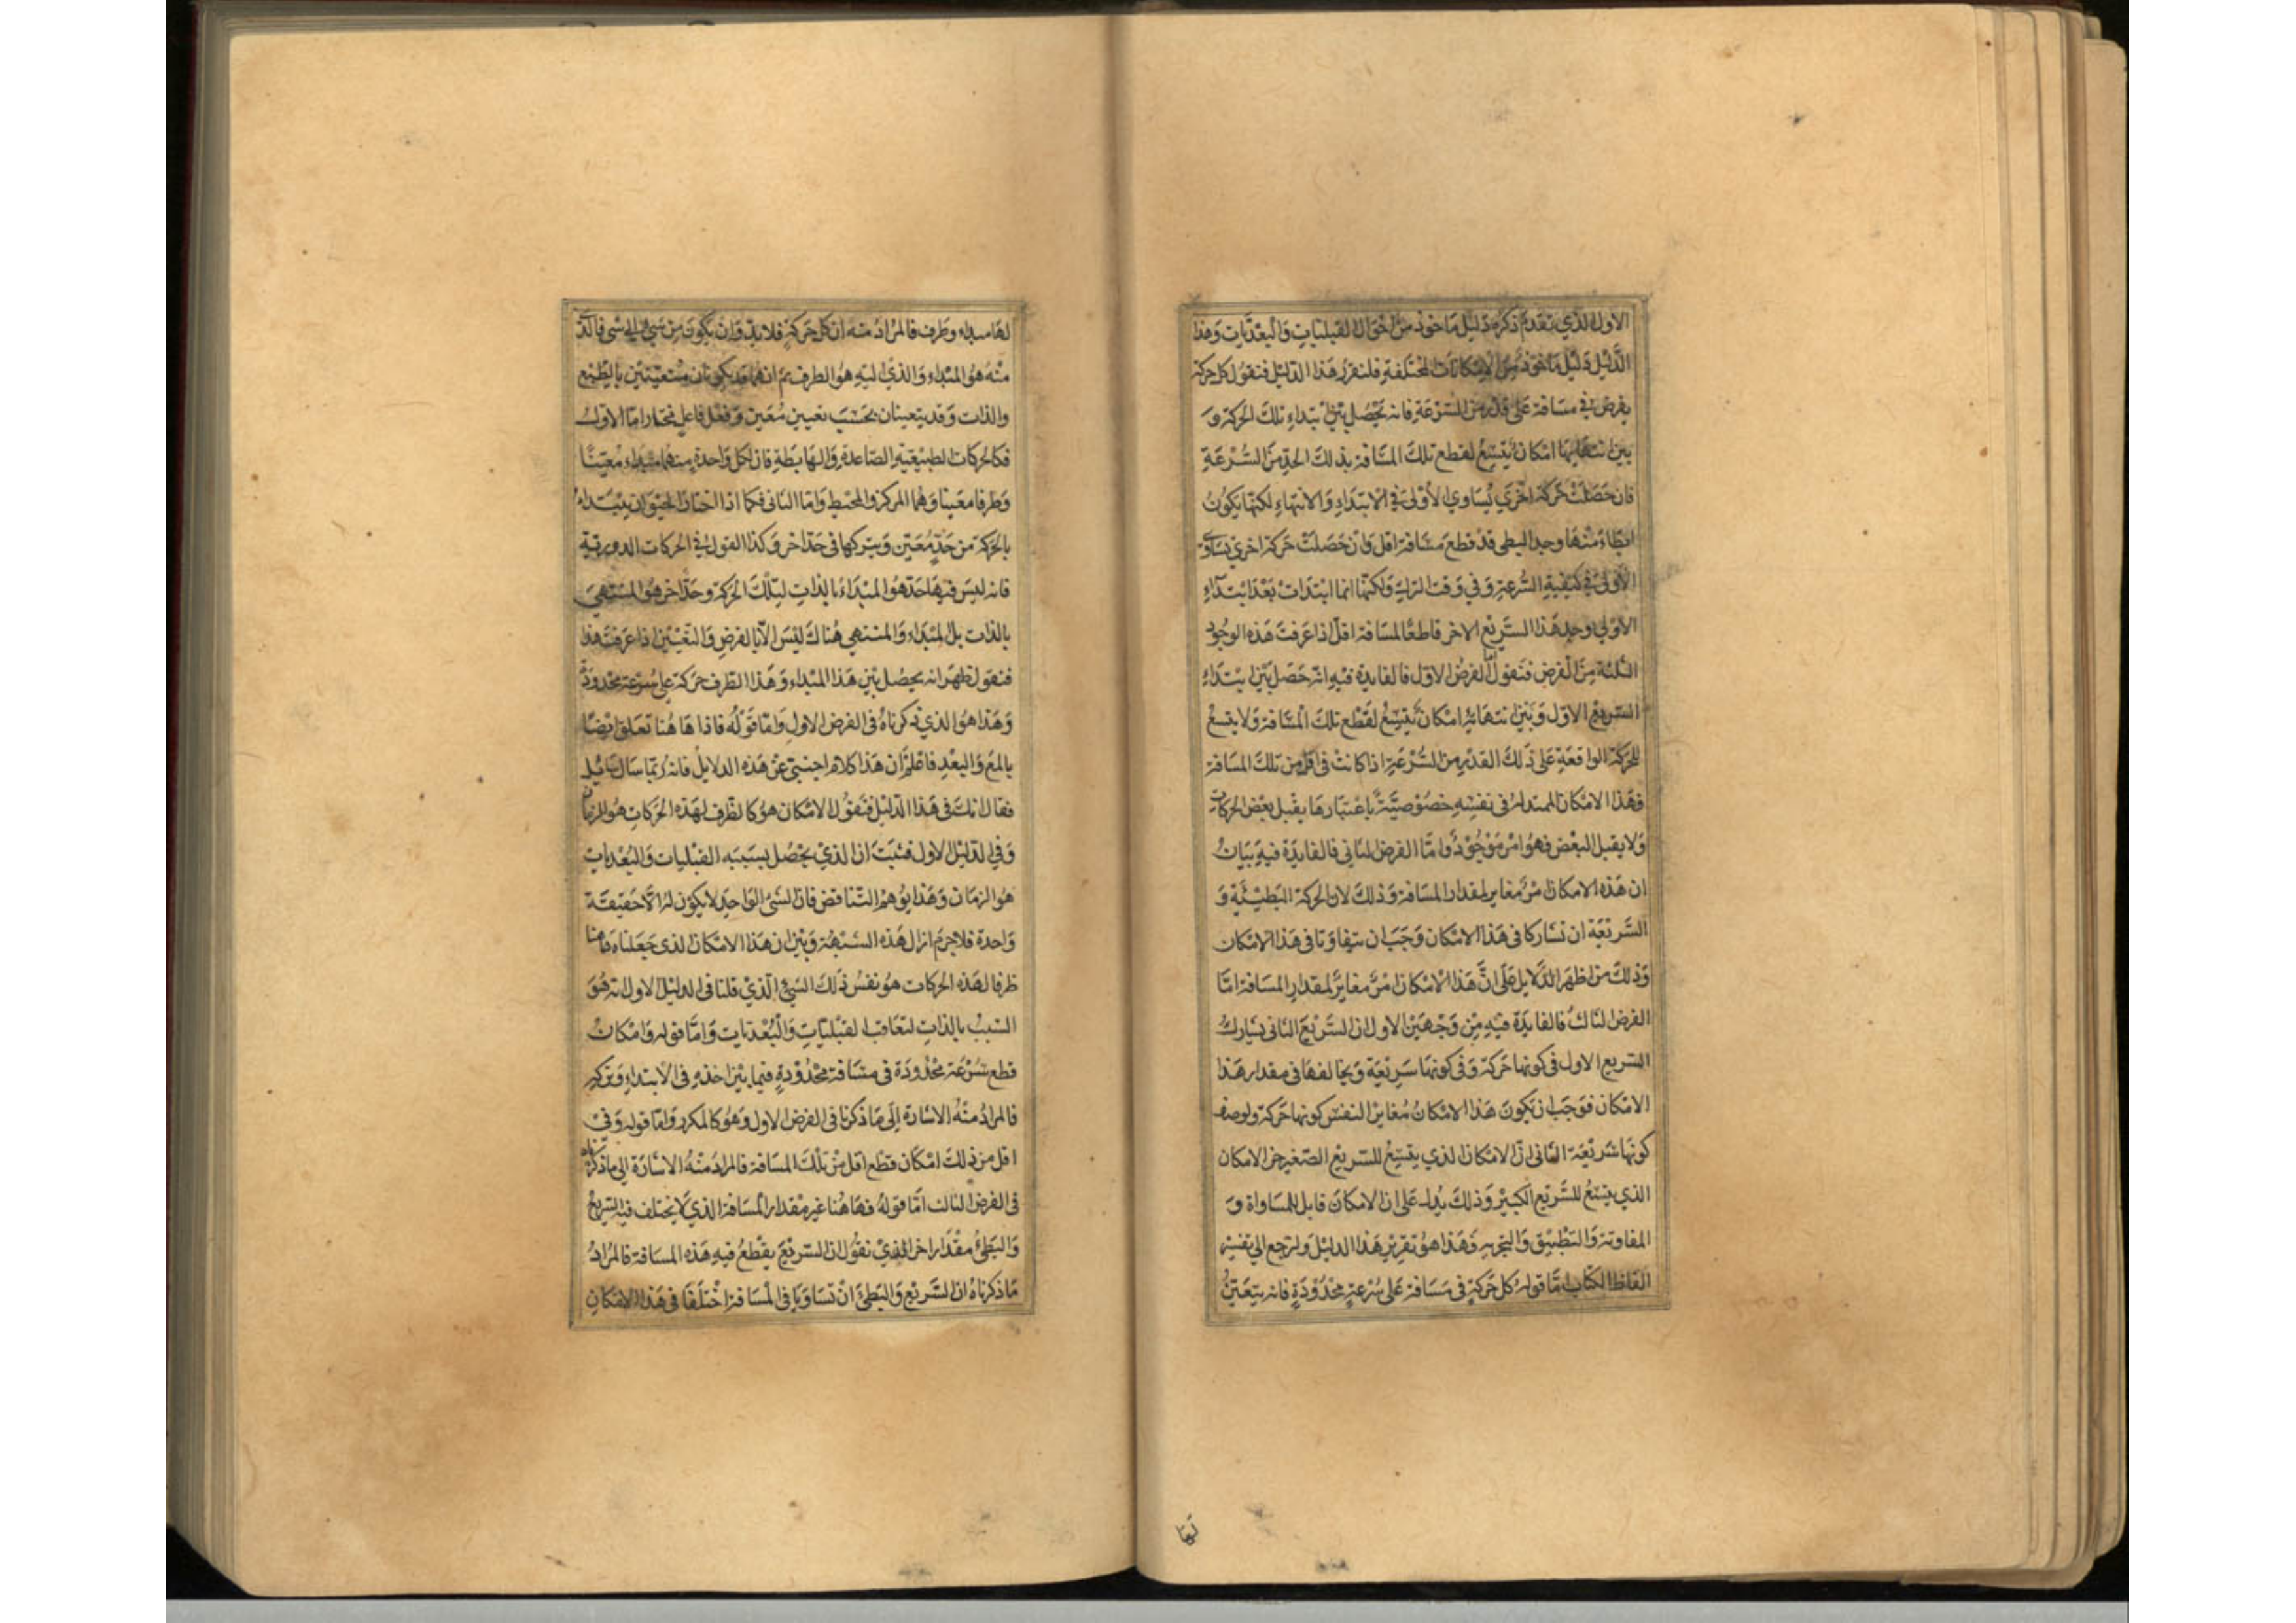 الاول الذي تقدم ذكره دليل ماخوذ من احوال القبليات والبعديات وهذا
الدليل دليل ماخوذ من الامكانات المختلفة فلنقرر هذا الدليل فنقول كل حركة
يفرض في مسافة على قدر من السرعة فانه يحصل بين ابتداء تلك الحركة و
بين انتهائها امكان يتسع لقطع تلك المسافة بذلك الحد من السرعة
فان حصلت حركة اخرى يساوي الاولى في الابتداء والانتهاء لكنها يكون
ابطاء منها وجد البطى قد قطع مسافة اقل وان حصلت حركة اخرى يساوى
الاولى في كيفية السرعة وفي وقت الترك ولكنها انما ابتدات بعد ابتداء
الاولى وجد هذا السريع الاخر قاطعا لمسافة اقل اذا عرفت هذه الوجوه
الثلثة من الفرض فنقول اما الفرض الاول فالفايدة فيه انه حصل بين ابتداء
السريع الاول وبين انتهائه امكان يتسع لقطع تلك المسافة ولا يتسع
للحركة الواقعة على ذلك القدر من السرعة اذا كانت في اقل من تلك المسافة
فهذا الامكان الممتد له في نفسه خصوصية باعتبارها يقبل بعض الحركات
ولا يقبل البعض فهو امر موجود واما الفرض الثاني فالفايدة فيه بيان
ان هذه الامكان امر مغاير لمقدار المسافة وذلك لان الحركة البطيئة و
السريعة ان تشاركا في هذا الامكان وجب ان يتفاوتا في هذا الامكان
وذلك من اظهر الدلايل على ان هذا الامكان امر مغاير لمقدار المسافة اما
الفرض الثالث فالفايدة فيه من وجهين الاول ان السريع الثاني يشارك
السريع الاول في كونها حركة وفي كونها سريعة ويخالفها في مقدار هذا
الامكان فوجب ان يكون هذا الامكان مغايرا لنفس كونها حركة ولوصف
كونها سريعة الثاني ان الامكان الذي يتسع للسريع الصغير جزء الامكان
الذي يتسع للسريع الكبير وذلك يدل على ان الامكان قابل للمساواة و
المفاوتة والتطبيق والتجزية وهذا هو تقرير هذا الدليل ولنرجع الى تفسير
الفاظ الكتاب اما قوله كل حركة في مسافة على سرعة محدودة فانه يتعين
لها
لها مبداء وطرف فالمراد منه ان كل حركة فلا بد وان يكون من شيء الى شى فالذى
منه هو المبداء والذي اليه هو الطرف ثم انهما قد يكونان متعينين بالطبع
والذات وقد يتعينان بحسب تعيين معين وفعل فاعل مختار اما الاول
فكالحركات الطبيعية الصاعدة والهابطة فان لكل واحدة منهما مبداء معينا
وطرفا معينا وهما المركز والمحيط واما الثاني فكما اذا اختار الحيوان يبتداء
بالحركة من حد معين ويتركها في حد اخر وكذا القول في الحركات الدورية
فانه ليس فيها حد هو المبداء بالذات لتلك الحركة وحد اخر هو المنتهى
بالذات بل المبداء والمنتهي هناك ليس الا بالفرض والتعيين اذا عرفت هذا
فنقول ظهر انه يحصل بين هذا المبداء وهذا الطرف حركة على سرعة محدودة
وهذا هو الذي ذكرناه في الفرض الاول واما قوله فاذا هاهنا تعلق ايضا
بالمع والبعد فاعلم ان هذا كلام اجنبي عن هذه الدلايل فانه ربما سال سايل
فقال انك في هذا الدليل فنقول الامكان هو كالظرف لهذه الحركات هو الزمان
وفي الدليل الاول فثبت ان الذي يحصل بسببه القبليات والبعديات
هو الزمان وهذا يوهم التناقض فان الشئ الواحد لا يكون له الا حقيقة
واحدة فلا جرم ازال هذه الشبهة وبين ان هذا الامكان الذي جعلناه هاهنا
ظرفا لهذه الحركات هو نفس ذلك الشئ الذي قلنا في الدليل الاول انه هو
السبب بالذات لتعاقب القبليات والبعديات واما قوله وامكان
قطع بسرعة محدودة في مسافة محدودة فيما بين اخذه في الابتداء وتركه
فالمراد منه الاشارة الى ما ذكرنا في الفرض الاول وهو كالمكرر واما قوله وفي
اقل من ذلك امكان قطع اقل من تلك المسافة فالمراد منه الاشارة الى ما ذكرناه
في الفرض الثالث اما قوله فهاهنا غير مقدار المسافة الذي لا يختلف فيه السريع
والبطئ مقدار اخر الذي نقول ان السريع يقطع فيه هذه المسافة فالمراد
ما ذكرناه ان السريع والبطئ ان تساويا في المسافة اختلفا في هذا الامكان